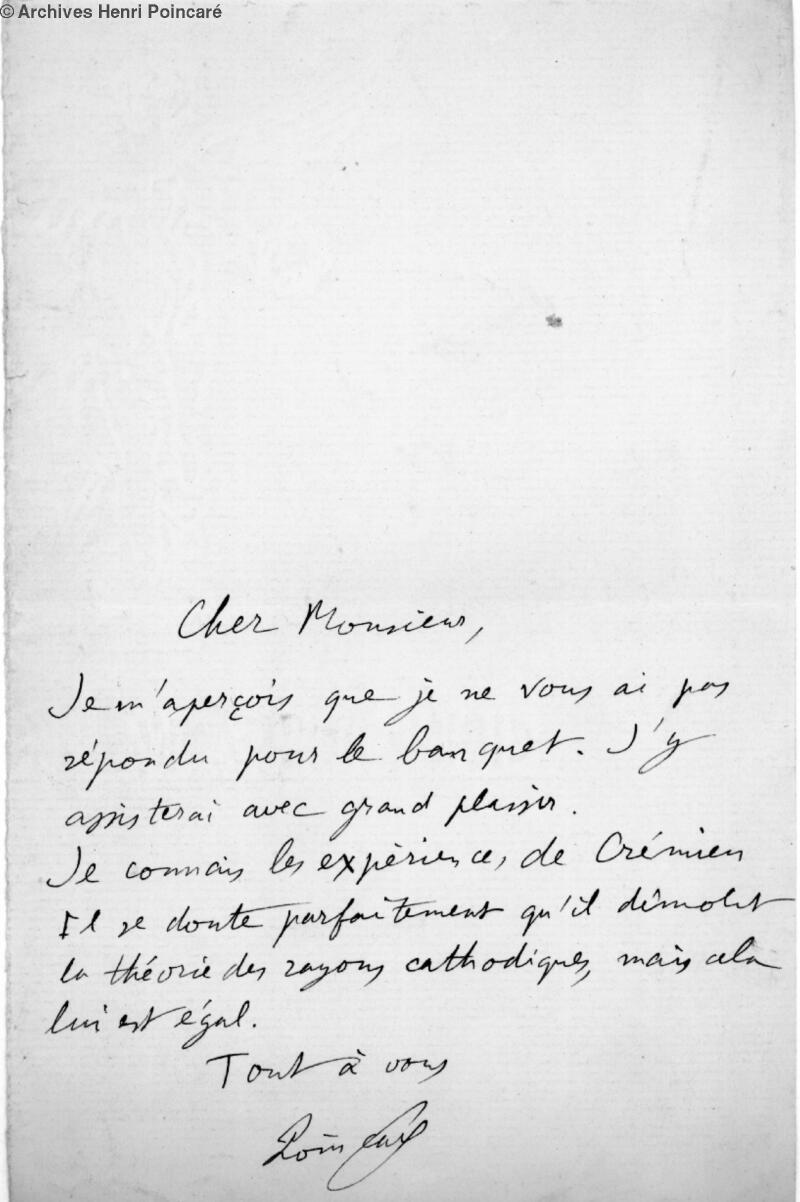 © Archives Henri Poincaré
Cher Monsieur,
Je m'aperçois que je ne vous ai pas
répondu pour le banquet. J'y
assisterai avec grand plaisir.
Je connais les expériences de Crémieu
Il se doute parfaitement qu'il démolit
la théorie des rayons cathodiques, mais cela
lui est égal.
Tout à vous
Poincaré